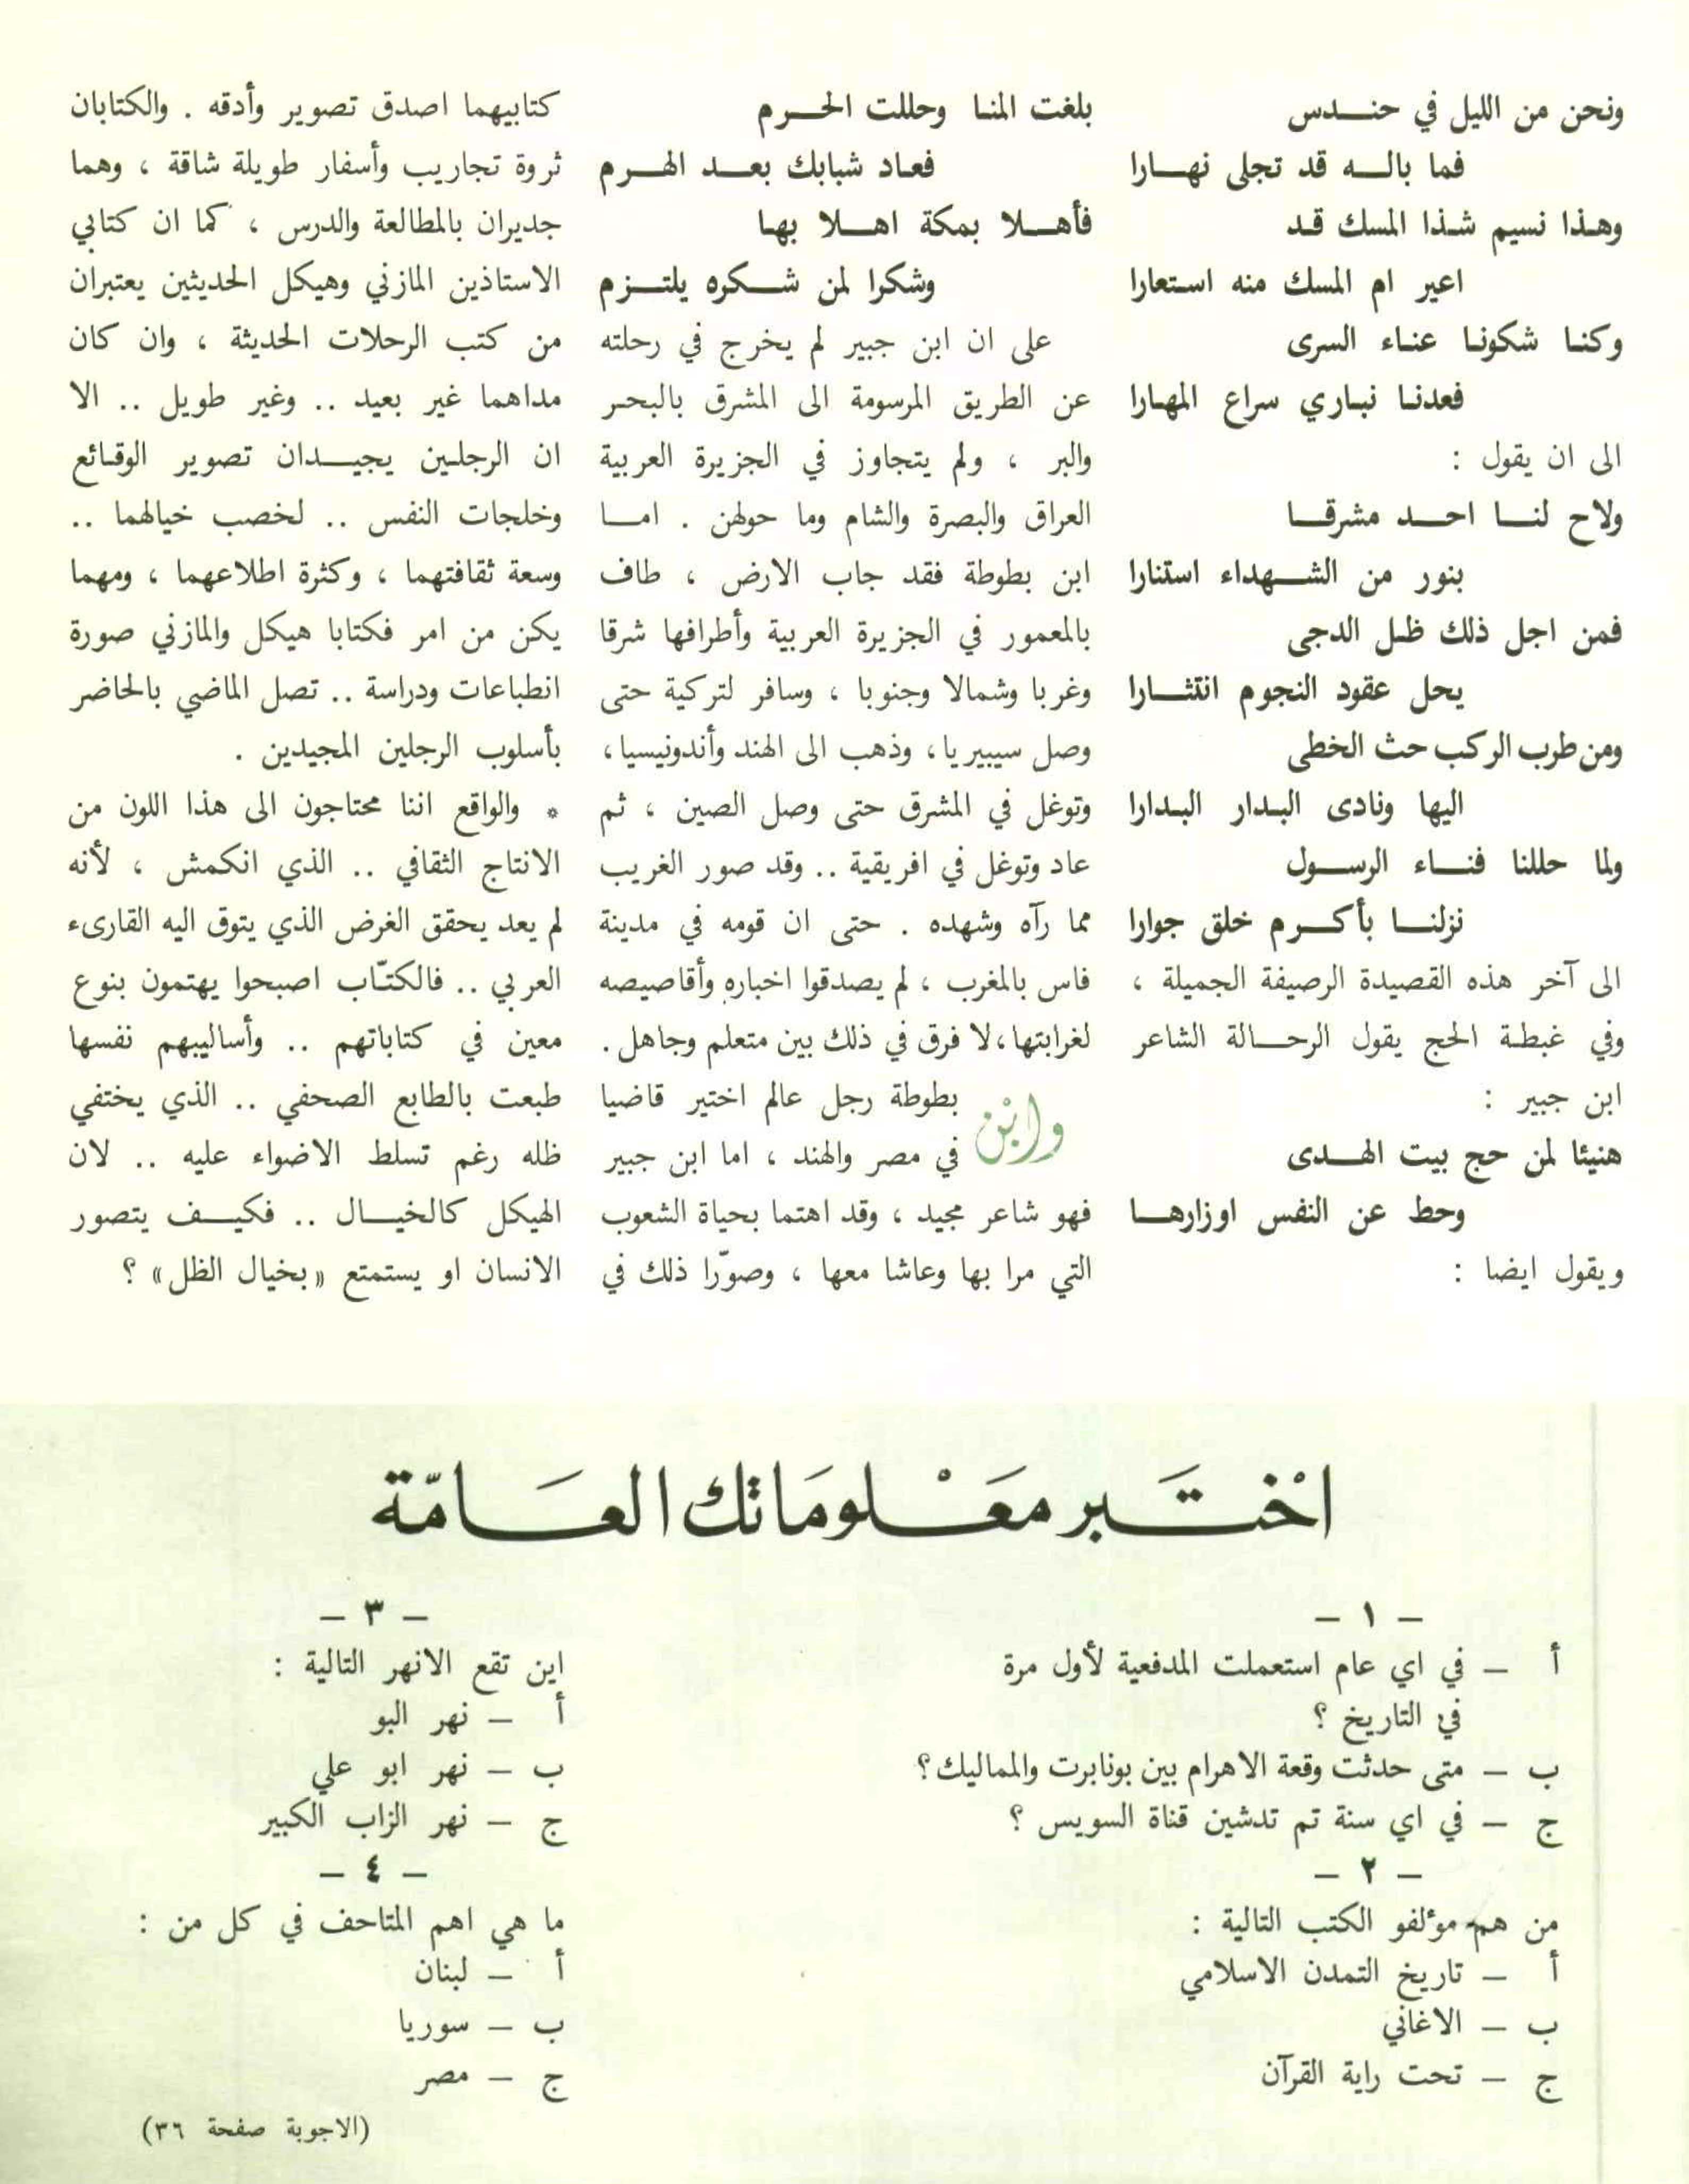 ونحن من الليل في حنـــدس
فما بالــه قد تجلى نهــارا
وهـذا نسيم شـذا المسك قـد
اعير ام المسك منه استعارا
وكنـا شكونـا عنـاء السرى
فعدنـا نبـاري سراع المهـارا
الى ان يقول :
ولاح لنـــا احـــد مشرقـــا
بنور من الشـــهداء استنارا
فمن اجل ذلك ظـل الدجى
يحل عقود النجوم انتثـــارا
ومن طرب الركب حث الخطى
اليها ونادى البـدار البـدارا
ولما حللنا فنـــاء الرســـول
نزلنـــا بأكـــرم خلق جوارا
الى آخر هذه القصيدة الرصيفة الجميلة ،
وفي غبطـة الحج يقول الرحـــالة الشاعر
ابن جبير :
هنيئا لمن حج بيت الهـــدى
وحط عن النفس اوزارهـــا
ويقول ايضا :
بلغت المنـا وحللت الحـــرم
فعـاد شبابك بعـــد الهـــرم
فأهـــلا بمكة اهـــلا بهـا
وشكرا لمن شـــكره يلتـــزم
على ان ابن جبير لم يخرج في رحلته
عن الطريق المرسومة الى المشرق بالبحـر
والبر ، ولم يتجاوز في الجزيرة العربية
العراق والبصرة والشام وما حولهن . امـــا
ابن بطوطة فقد جاب الارض ، طاف
بالمعمور في الجزيرة العربية وأطرافها شرقا
وغربا وشمالا وجنوبا ، وسافر لتركية حتى
وصل سيبيريا، وذهب الى الهند وأندونيسيا،
وتوغل في المشرق حتى وصل الصين ، ثم
عاد وتوغل في افريقية .. وقد صور الغريب
مما رآه وشهده . حتى ان قومه في مدينة
فاس بالمغرب ، لم يصدقوا اخباره وأقاصيصه
لغرابتها،لا فرق في ذلك بين متعلم وجاهل.
وابن بطوطة رجل عالم اختير قاضيا
في مصر والهند ، اما ابن جبير
فهو شاعر مجيد ، وقد اهتما بحياة الشعوب
التي مرا بها وعاشا معها ، وصوّرا ذلك في
كتابيهما اصدق تصوير وأدقه . والكتابان
ثروة تجاريب وأسفار طويلة شاقة ، وهما
جديران بالمطالعة والدرس ، كما ان كتابي
الاستاذين المازني وهيكل الحديثين يعتبران
من كتب الرحلات الحديثة ، وان كان
مداهما غير بعيد .. وغير طويل .. الا
ان الرجلـين يجيـــدان تصوير الوقـائع
وخلجات النفس .. لخصب خيالهما ..
وسعة ثقافتهما ، وكثرة اطلاعهما ، ومهما
يكن من امر فكتابا هيكل والمازني صورة
انطباعات ودراسة .. تصل الماضي بالحاضر
بأسلوب الرجلين المجيدين .
* والواقع اننا محتاجون الى هذا اللون من
الانتاج الثقافي .. الذي انكمش ، لأنه
لم يعد يحقق الغرض الذي يتوق اليه القارىء
العربي .. فالكتّاب اصبحوا يهتمون بنوع
معين في كتاباتهم .. وأساليبهم نفسها
طبعت بالطابع الصحفي .. الذي يختفي
ظله رغم تسلط الاضواء عليه .. لان
الهيكل كالخيـــال .. فكيـــف يتصور
الانسان او يستمتع «بخيال الظل» ؟
اخْتَـــبر معَـــلومَاتك العَـــامّة
– ١ –
أ – في اي عام استعملت المدفعية لأول مرة
في التاريخ ؟
ب – متى حدثت وقعة الاهرام بين بونابرت والمماليك؟
ج – في اي سنة تم تدشين قناة السويس ؟
– ٢ –
من هم مؤلفو الكتب التالية :
أ – تاريخ التمدن الاسلامي
ب – الاغاني
ج – تحت راية القرآن
– ٣ –
اين تقع الانهر التالية :
أ – نهر البو
ب – نهر ابو علي
ج – نهر الزاب الكبير
– ٤ –
ما هي اهم المتاحف في كل من :
أ – لبنان
ب – سوريا
ج – مصر
(الاجوبة صفحة ٣٦)